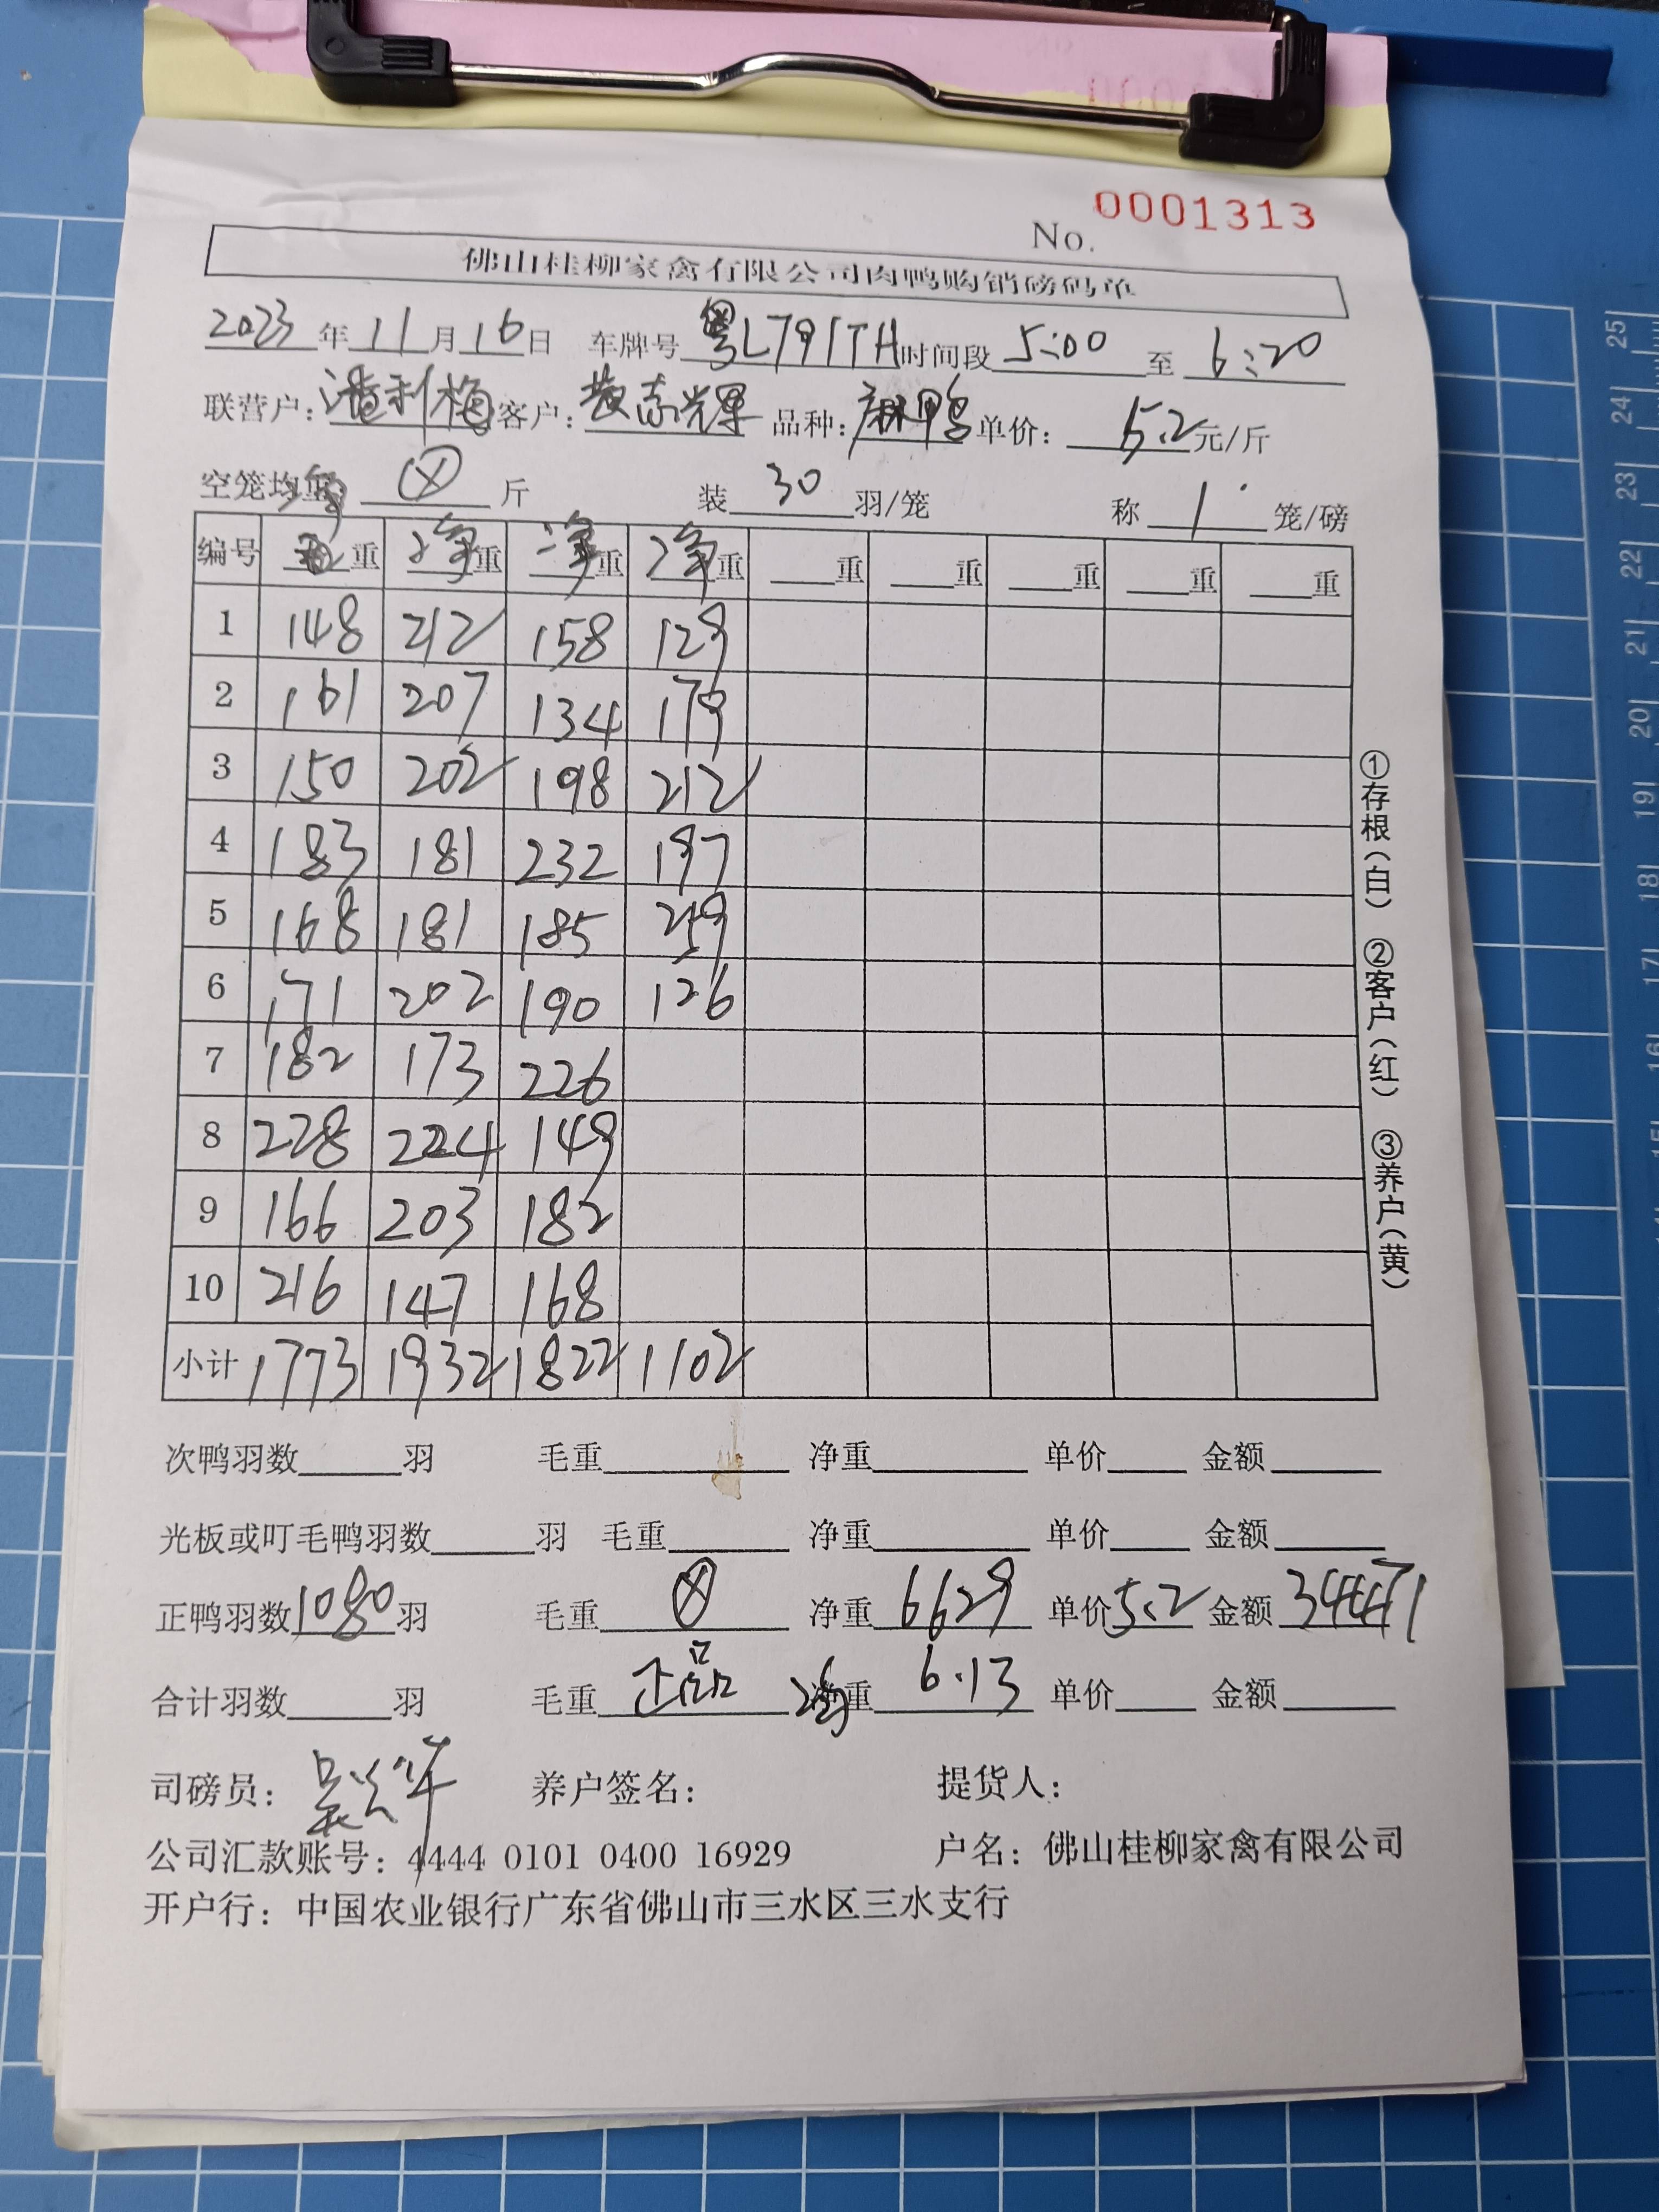 No. 0001313
佛山桂柳家禽有限公司肉鸭购销磅码单
2023年11月16日 车牌号粤L791TH时间段5:00至6:20
联营户:潘利梅客户:黄志辉 品种:麻鸭单价:5.2元/斤
空笼均重 ⊗ 斤 装30羽/笼 称1笼/磅
编号 重 净重 净重 净重 __重 __重 __重 __重 __重
1 148 212 158 129
2 161 207 134 179
3 150 202 198 212
4 183 181 232 197
5 168 181 185 259
6 171 202 190 126
7 182 173 226
8 228 224 149
9 166 203 182
10 216 147 168
小计 1773 1932 1822 1102
次鸭羽数____羽 毛重____ 净重____ 单价____ 金额____
光板或叮毛鸭羽数____羽 毛重____ 净重____ 单价____ 金额____
正鸭羽数1080羽 毛重⊗ 净重6629 单价5.2 金额34471
合计羽数____羽 毛重正品 均重6.13 单价____ 金额____
司磅员: 养户签名: 提货人:
公司汇款账号:4444 0101 0400 16929 户名:佛山桂柳家禽有限公司
开户行:中国农业银行广东省佛山市三水区三水支行
①存根(白) ②客户(红) ③养户(黄)
25
24
23
22
21
20
19
18
17
16
15